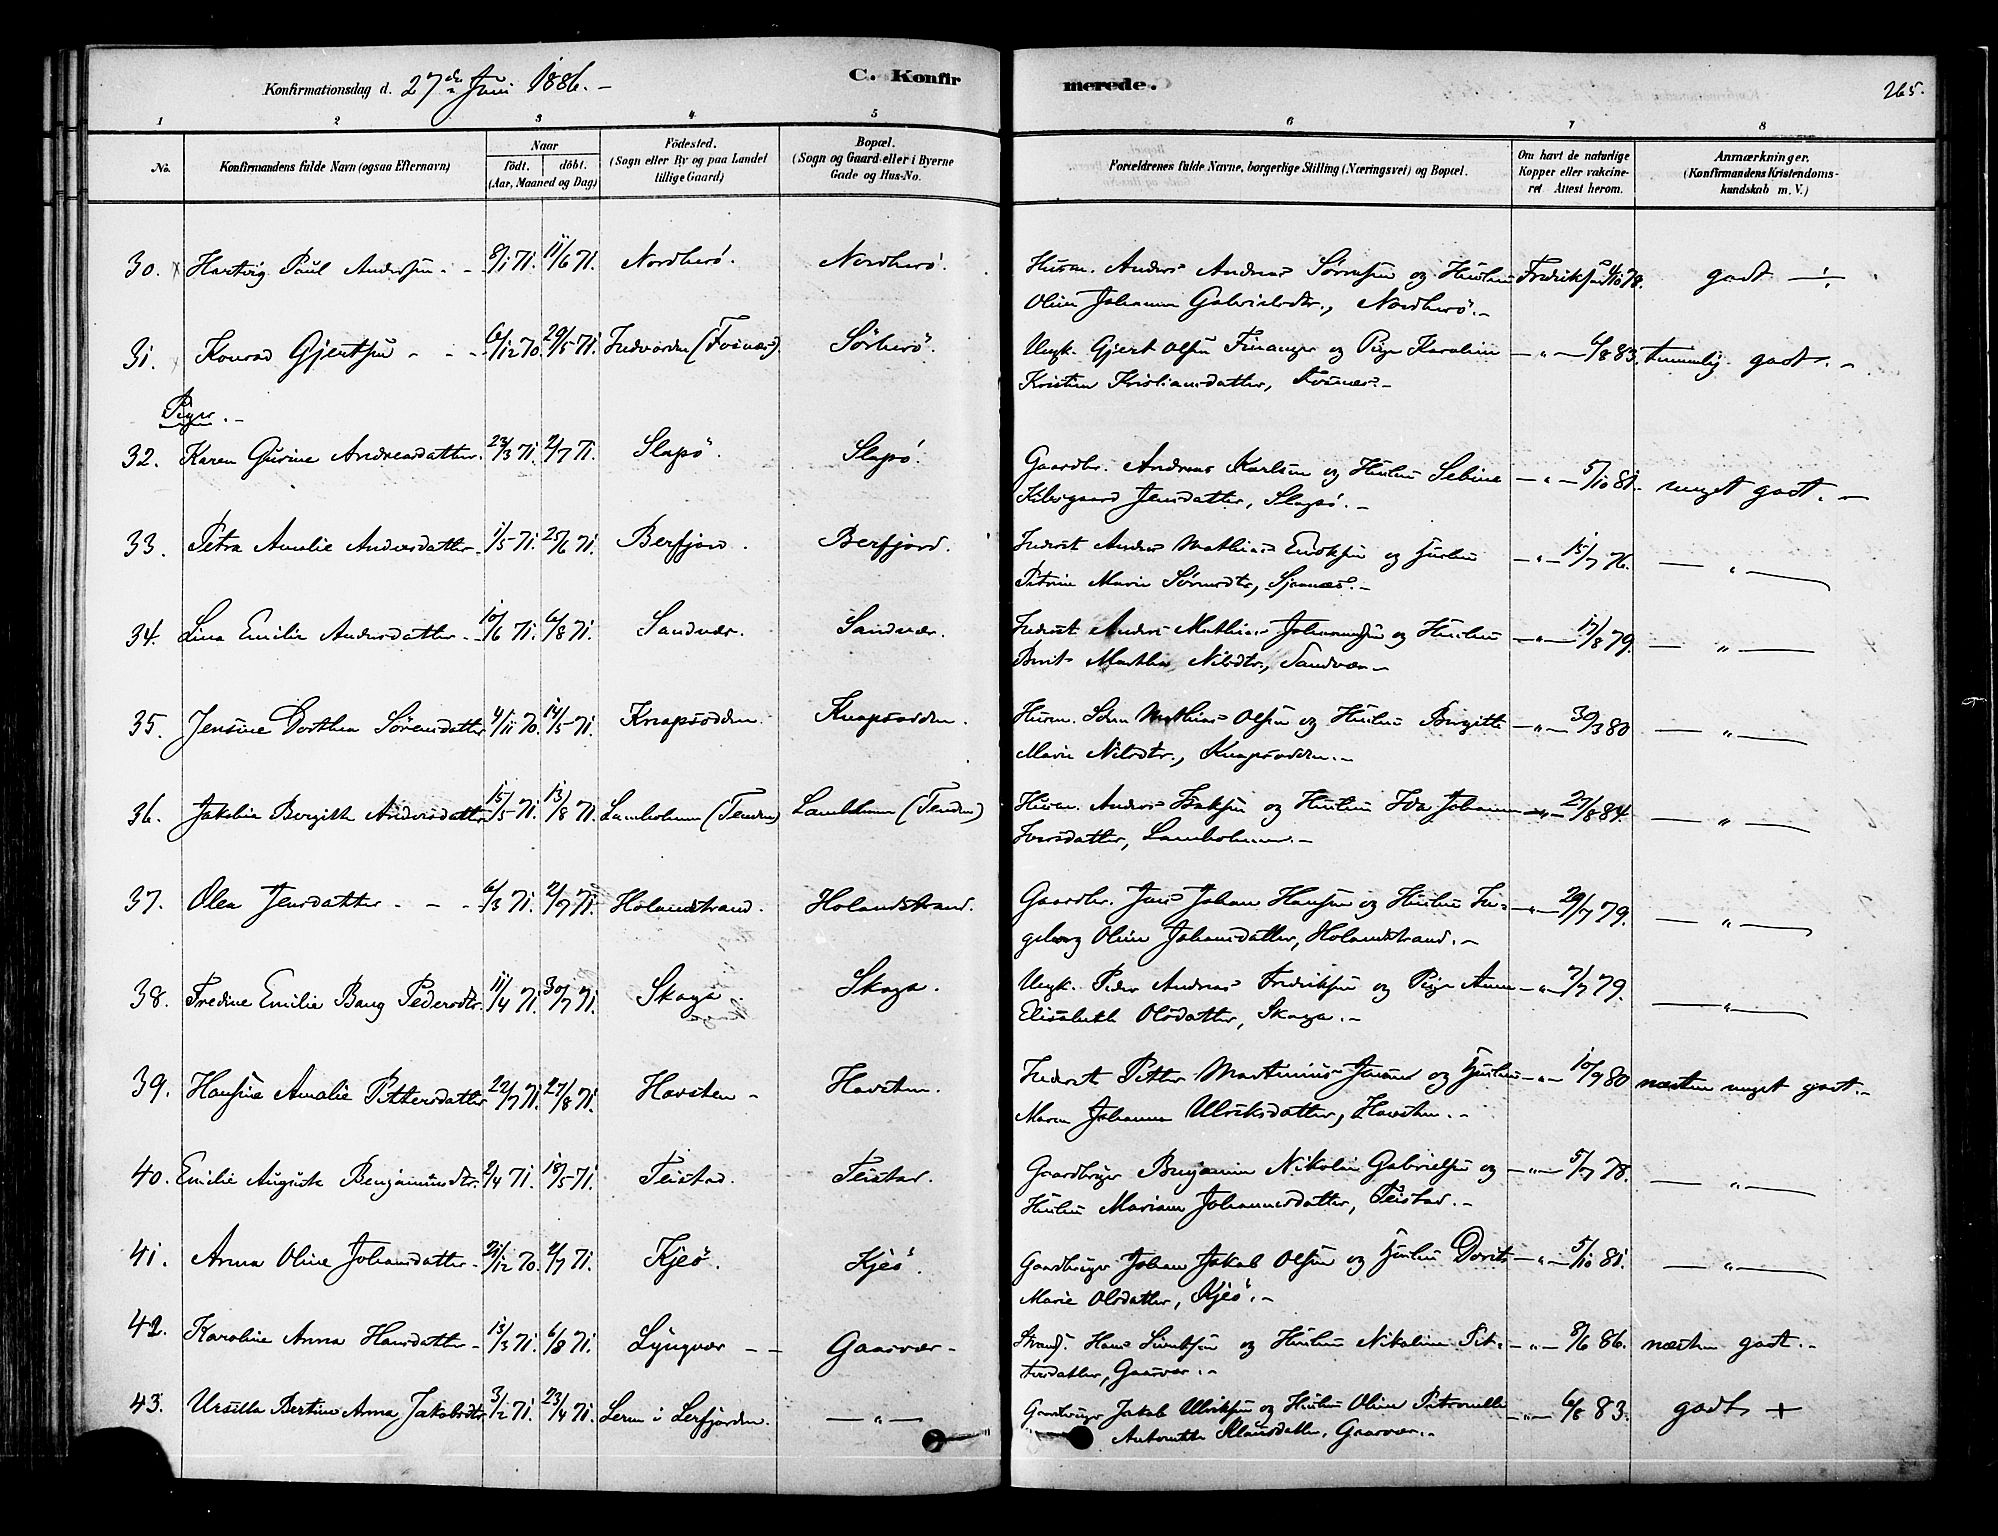 Konfirmationsdag d. 27de Juni 1886.-
C. Konfirmerede.
265.
1 2 3 4 5 6 7 8
No. Konfirmandens fulde Navn (ogsaa Efternavn) Naar født. døbt. (Aar, Maaned og Dag) Fødested. (Sogn eller By og paa Landet tillige Gaard) Bopæl. (Sogn og Gaard eller i Byerne Gade og Hus-No. Forældrenes fulde Navne, borgerlige Stilling (Næringsvei) og Bopæl. Om havt de naturlige Kopper eller vakcineret Attest herom. Anmærkninger. (Konfirmandens Kristendomskundskab m. V.)
30. Hartvig Paul Andersen 8/1 71. 11/6 71. Nordherö. Nordherö. Husm. Anders Andreas Sørensen og Hustru 78. godt
Oline Johanna Gabrielsdtr., Nordherö.-
31. Konrad Gjertsen - - - 6/12 70. 29/5 71. Indvorden (Fosnæs) Sörherö. Ungk. Gjert Olsen Finanger og Pige Karoline - " - 6/8 83. temmelig godt. -
Kristine Kristiansdatter, Fosnæs.-
Piger.-
32. Karen Gurine Andreasdatter. 23/3 71. 2/7 71. Slapö. Slapö. Gaardbr. Andreas Karlsen og Hustru Sebine - " - 5/10 81. meget godt. -
Kilsgaard Jensdatter, Slapö.-
33. Petra Amalie Andersdatter. 1/5 71. 25/6 71. Berfjord. Berfjord. Inderst Anders Mathias Enoksen og Hustru - " - 15/7 76. - " -
Petrine Marie Sörensdtr, Sjonnæs.-
34. Lina Emilie Andersdatter. - 10/6 71. 6/8 71. Sandvær. Sandvær. Inderst Anders Mathias Johannesen og Hustru - " - 17/8 79. - " -
Berit Martha Nilsdtr., Sandvær.-
35. Jensine Dorthea Sörensdatter 4/11 70. 14/5 71. Knapsodden. Knapsodden. Husm. Sören Mathias Olsen og Hustru Birgitte - " - 30/3 80 - " -
Marie Nilsdtr., Knapsodden.-
36. Jakobine Bergitte Andersdatter 15/5 71. 13/8 71. Lamholmen (Tenden) Lamholmen (Tenden) Husm. Anders Isaksen og Hustru Ida Johanna - " - 27/8 84. - " -
Iversdatter, Lamholmen.-
37. Olea Jensdatter - - - 6/3 71. 2/7 71. Holandstrand. Holandstrand. Gaardbr. Jens Johan Hansen og Hustru In- - " - 29/7 79. - " -
geborg Oline Johansdatter, Holandstrand.-
38. Fredine Emilie Bang Pedersdtr. 11/4 71. 30/7 71. Skaga. Skaga. Ungk. Peder Andreas Fredriksen og Pige Anne - " - 7/7 79. - " -
Elisabeth Olsdatter, Skaga.-
39. Hansine Amalie Pettersdatter 22/7 71. 27/8 71. Havsten - Havsten. Inderst Petter Martinius Jensen og Hustru - " - 10/9 80 næsten meget godt.-
Maren Johanna Ulriksdatter, Havsten.-
40. Emilie Auguste Benjaminsdtr. 2/4 71. 18/5 71. Teistad. Teistad. Gaardbruger Benjamin Nikolai Gabrielsen og - " - 5/7 78. - " -
Hustru Mariane Johannesdatter, Teistad.-
41. Anna Oline Johansdatter - 21/12 70. 2/7 71. Kjeö. Kjeö. Gaardbruger Johan Jakob Olsen og Hustru Dorit - " - 5/10 81. - " -
Marie Olsdatter, Kjeö.-
42. Karoline Anna Hansdatter - 13/3 71. 6/8 71. Lyngvær - - Gaasvær - Strands. Hans Sivertsen og Hustru Nikoline Pet- - " - 8/6 86. næsten godt.-
tersdatter, Gaasvær.-
43. Ursilla Bertine Anna Jakobsdtr 3/2 71. 23/4 71. Lerun i Lerfjorden. - " - Gaardbruger Jakob Ulriksen og Hustru Oline Petronelle - " - 6/8 83. godt +
Antonette Klausdatter, Gaasvær.-